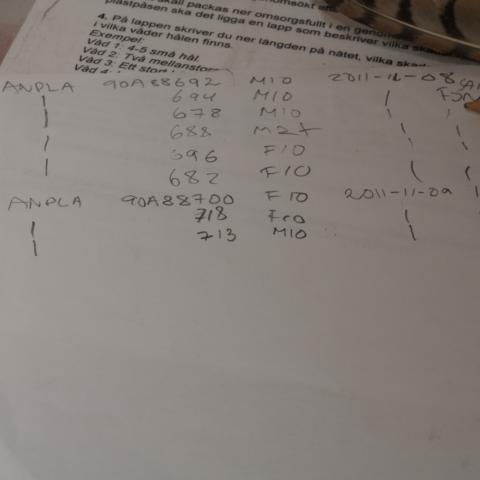 skall packas ner omsorgsfullt i en
plastpåsen ska det ligga en lapp som beskriver vilka
4. På lappen skriver du ner längden på nätet, vilka
i vilka våder hålen finns.
Exempel:
Våd 1: 4-5 små hål.
Våd 2: Två mellanstora
Våd 3: Ett stort
Våd 4:
ANPLA 90A88692 M10 2011-11-08
| 694 M10 |
| 678 M10 |
| 688 M2+ |
| 696 F10
| 682 F10 |
ANPLA 90A88700 F10 2011-11-09
| 718 F10 |
| 713 M10 |